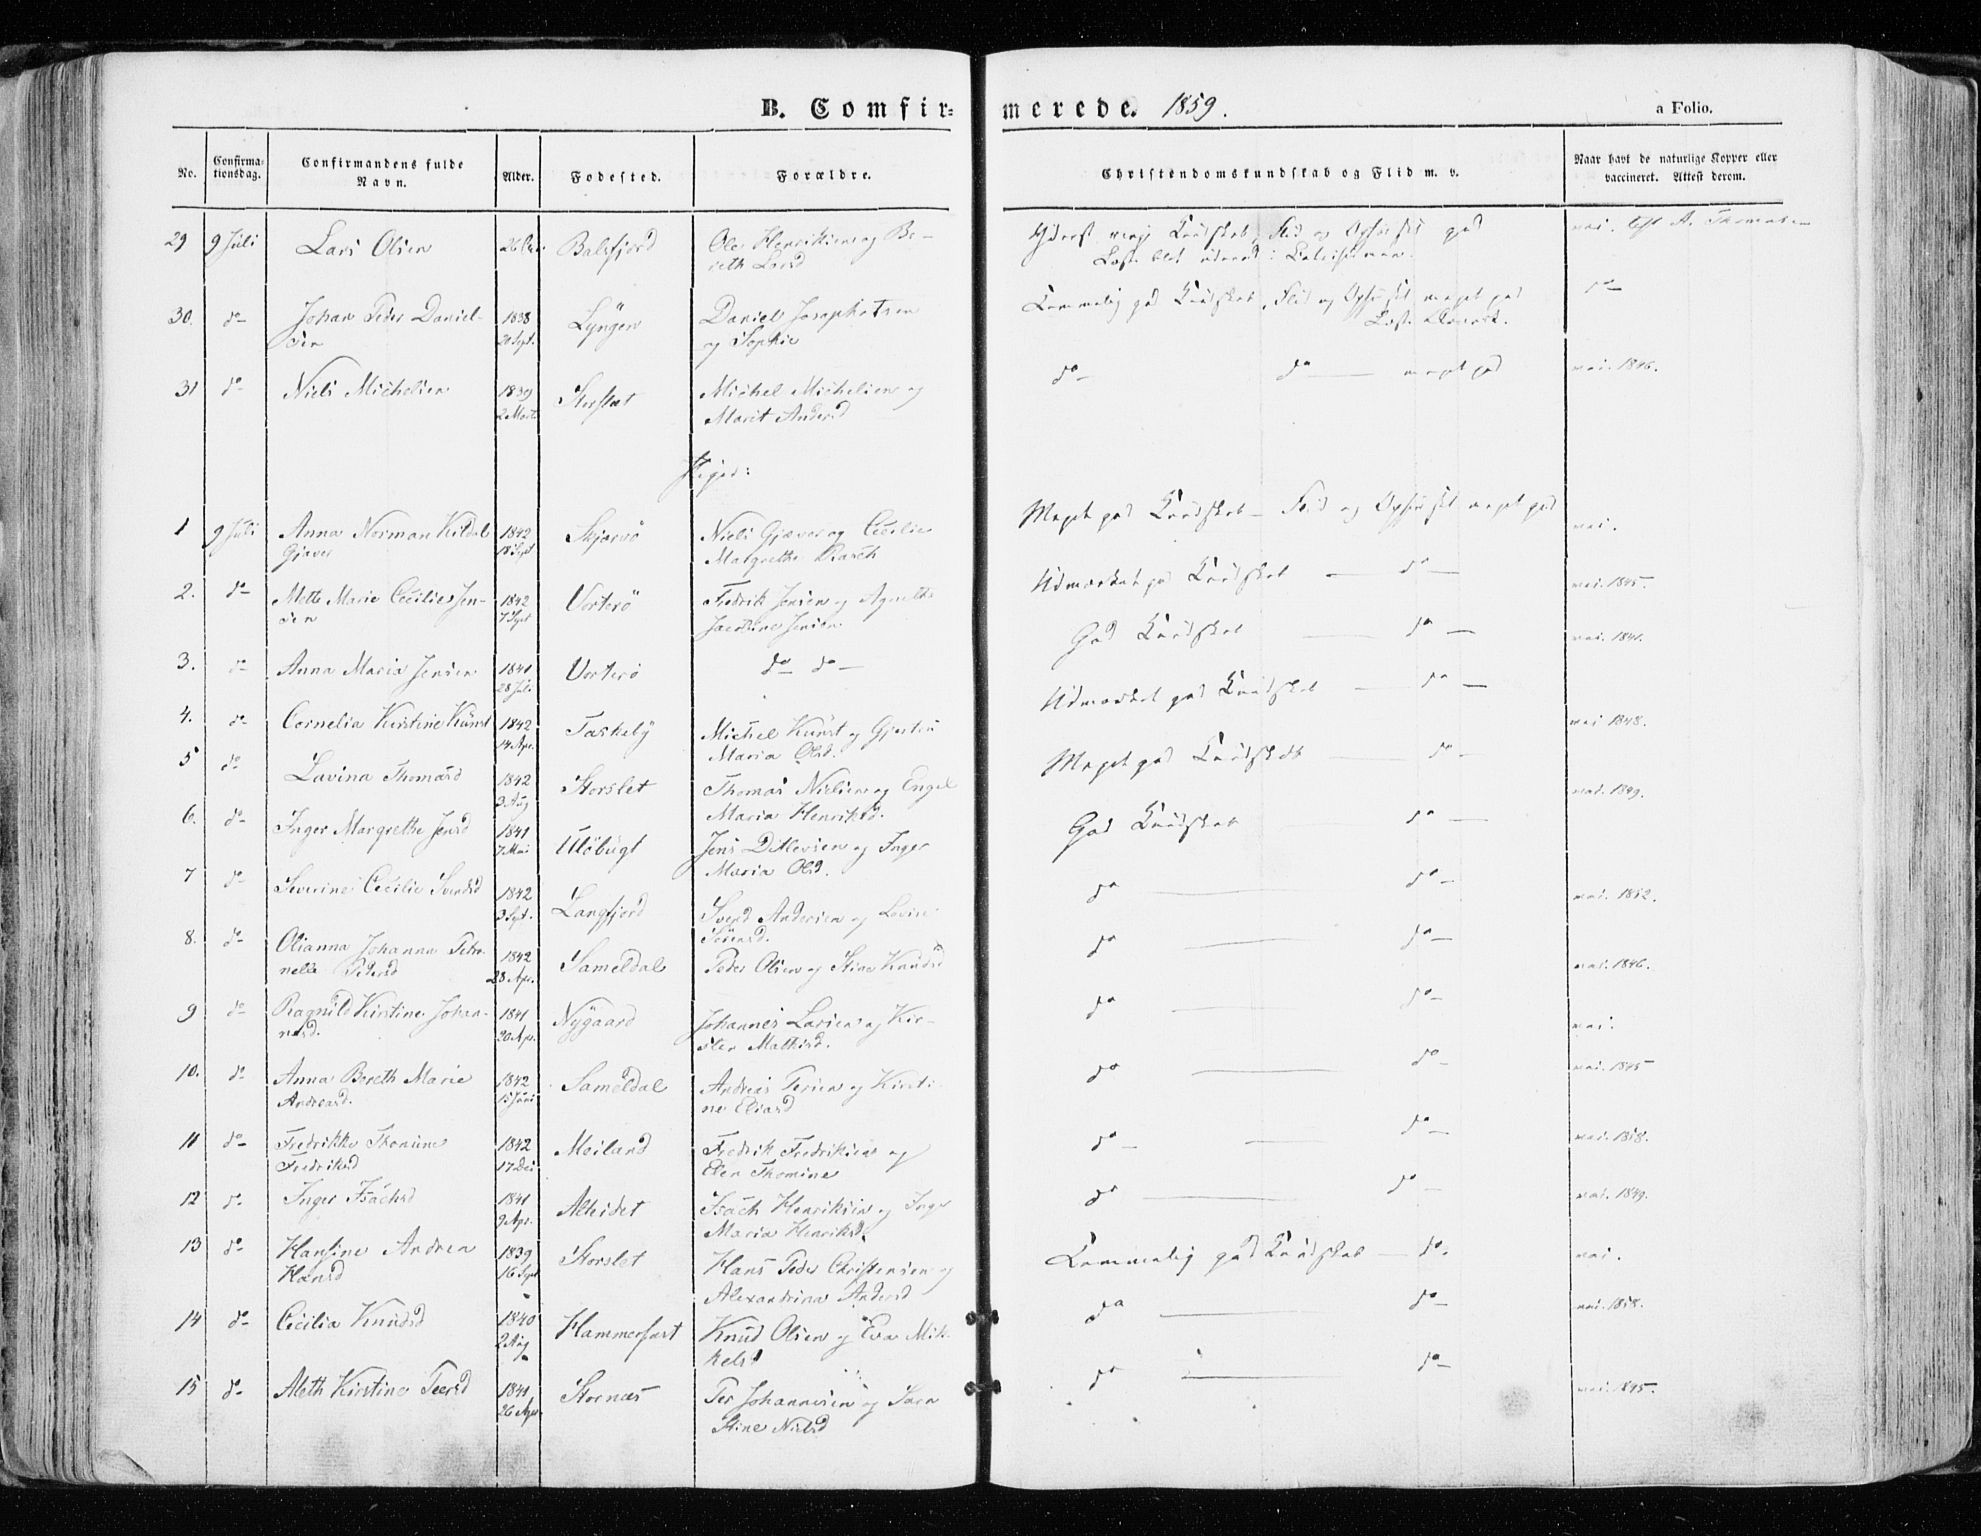 B. Comfir=
merede. 1859.
a Folio.
No.
Confirma=
tionsdag.
Confirmandens fulde
Navn.
Alder.
Fødested.
Forældre.
Christendomskundskab og Flid m. v.
Naar havt de naturlige Kopper eller
vaccineret. Attest derom.
29 9 Juli Lars Olsen Balsfjord Ole Henriksen og Be-
reth Larsd
30. do Johan Peder Daniel- 1838 Lyngen Daniel Josephatsen do
sen 20 Sept. og Sophie
31 do Niels Michelsen 1839 Storslet Michel Michelsen og do do meget god vac. 1846.
2 Marts Marit Andersd
Piger:
1 9 Juli Anna Norman Kildal 1842 Skjærvø Niels Gjæver og Cecilie Meget god Kundskab - Flid og Opførsel meget god vac.
Gjæver 18 Sept Margrethe Rasch
2. do Mette Marie Cecilie Jen- 1842 Vorterø Fredrik Jensen og Agnethe Udmærket god Kundskab do vac. 1845.
sen 7 Sept Jacobine Jensen
3. do Anna Maria Jensen 1841 Vorterø do do God Kundskab do vac. 1841.
28 Juli
4. do Cornelia Kirstine Künst 1842 Taskeby Michel Künst og Gjertru Udmærket god Kundskab do vac 1848.
14 Apr. Maria Olsd.
5 do Lavina Thomasd 1842 Storslet Thomas Nielsen og Engel Meget god Kundskab do vac. 1849.
3 Aug Maria Henriksd.
6. do Inger Margrethe Jensd 1841 Uløbugt Jens Ditlevsen og Inger God Kundskab do
7 Mai Maria Olsd.
7 do Severine Cecilie Svendsd 1842 Langfjord Svend Andersen og Lovise do do vac. 1852.
3 Sept. Sørensd.
8. do Olianna Johanna Petro- 1842 Sameldal Peder Olsen og Stine Knudsd do do vac. 1846.
nelle Pedersd 28 Apr.
9 do Ragnild Kirstine Johan- 1841 Nygaard Johannes Larsen og Kir- do do vac.
nesd. 30 Apr. sten Mathisd.
10. do Anna Bereth Marie 1842 Sameldal Andreas Persen og Kirsti- do do vac. 1845
Andreasd. 15 Juni ne Eliasd
11 do Fredrikke Thomine 1842 Meiland Fredrik Fredriksen og do do vac. 1858.
Fredriksd Elen Thomine
12 do Inger Isachsd 1841 Alteidet Isach Henriksen og Inger do do vac. 1849.
9 Apr. Maria Henriksd.
13 do Hansine Andrea 1839 Storslet Hans Peder Christensen og Temmelig god Kundskab do. vac.
Hansd 16 Sept Alexandrina Andersd
14 do Cecilia Knudsd 1840 Hammerfest Knud Olsen og Eva Mik- do do vac. 1858.
2 Aug kelsd
15 do Aleth Kirstine Peersd 1841 Storneæs Per Johannesen og Sara do do vac. 1845.
26 Apr. Stine Nielsd